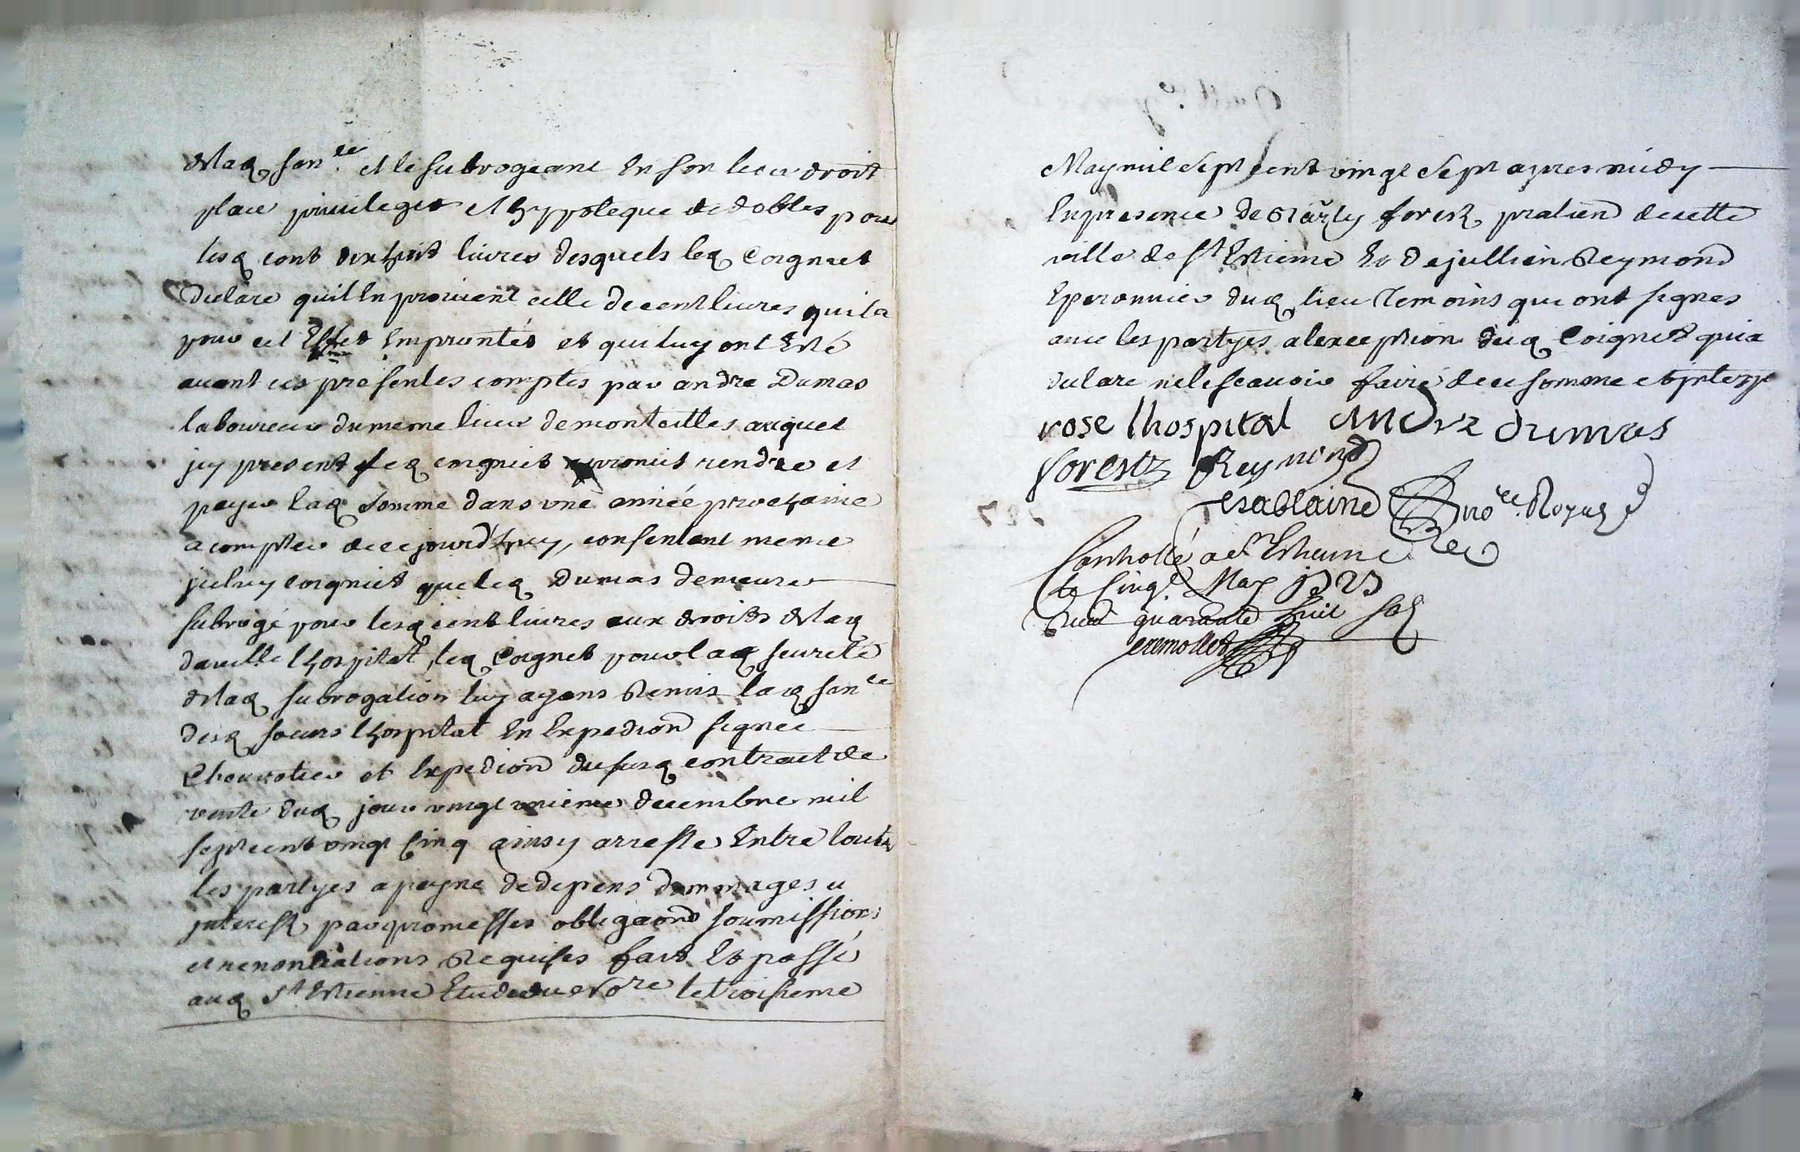 de laq. sen.ce et le subrogeant en son lieu droit
place privileges et hyppoteque de dobles pour
lesq. cent dix huit livres desquels leq. Coignet
declare quil en provient celle de cent livres quil a
pour cet Effet Empruntés et qui luy ont Eté
avant ces presentes comptés par andré Dumas
laboureur du meme lieu de monteilles auquel
icy present leq. coignet promet rendre et
payer laq. somme dans une année prochaine
a compter de ce jourd'huy, consentant meme
iceluy coignet que leq. Dumas demeure
subrogé pour lesq. cent livres aux droits de laq.
damelle lhospital, leq. Coignet pour laq. seureté
de laq. subrogation luy ayant Remis laq. sen.ce
desq. soeurs lhospital En Expedion signée
et Expedion dususq. contract de
vente duq. jour vingt unieme decembre mil
sept cent vingt cinq ainsy arresté Entre toutes
les partyes a peyne de depens dommages
interest par promesses obligaons soumissions
et renontiations Requises fait Et passé
auq. St. Etienne Etude du no.re le troisieme
May mil sept cent vingt sept apres midy
En presence de forest, pratien de cette
ville de St Etienne Et de jullien Reymond
Eperonnier duq. lieu Temoins qui ont signes
avec les partyes a lexception duq. Coignet qui a
declare ne le scavoir faire de ce sommé
rose lhospital andre dumas
forest Reymond
no.re Royal
Controllé a St Etienne
le cinq.e May 1727
Reçu quarante huit sols